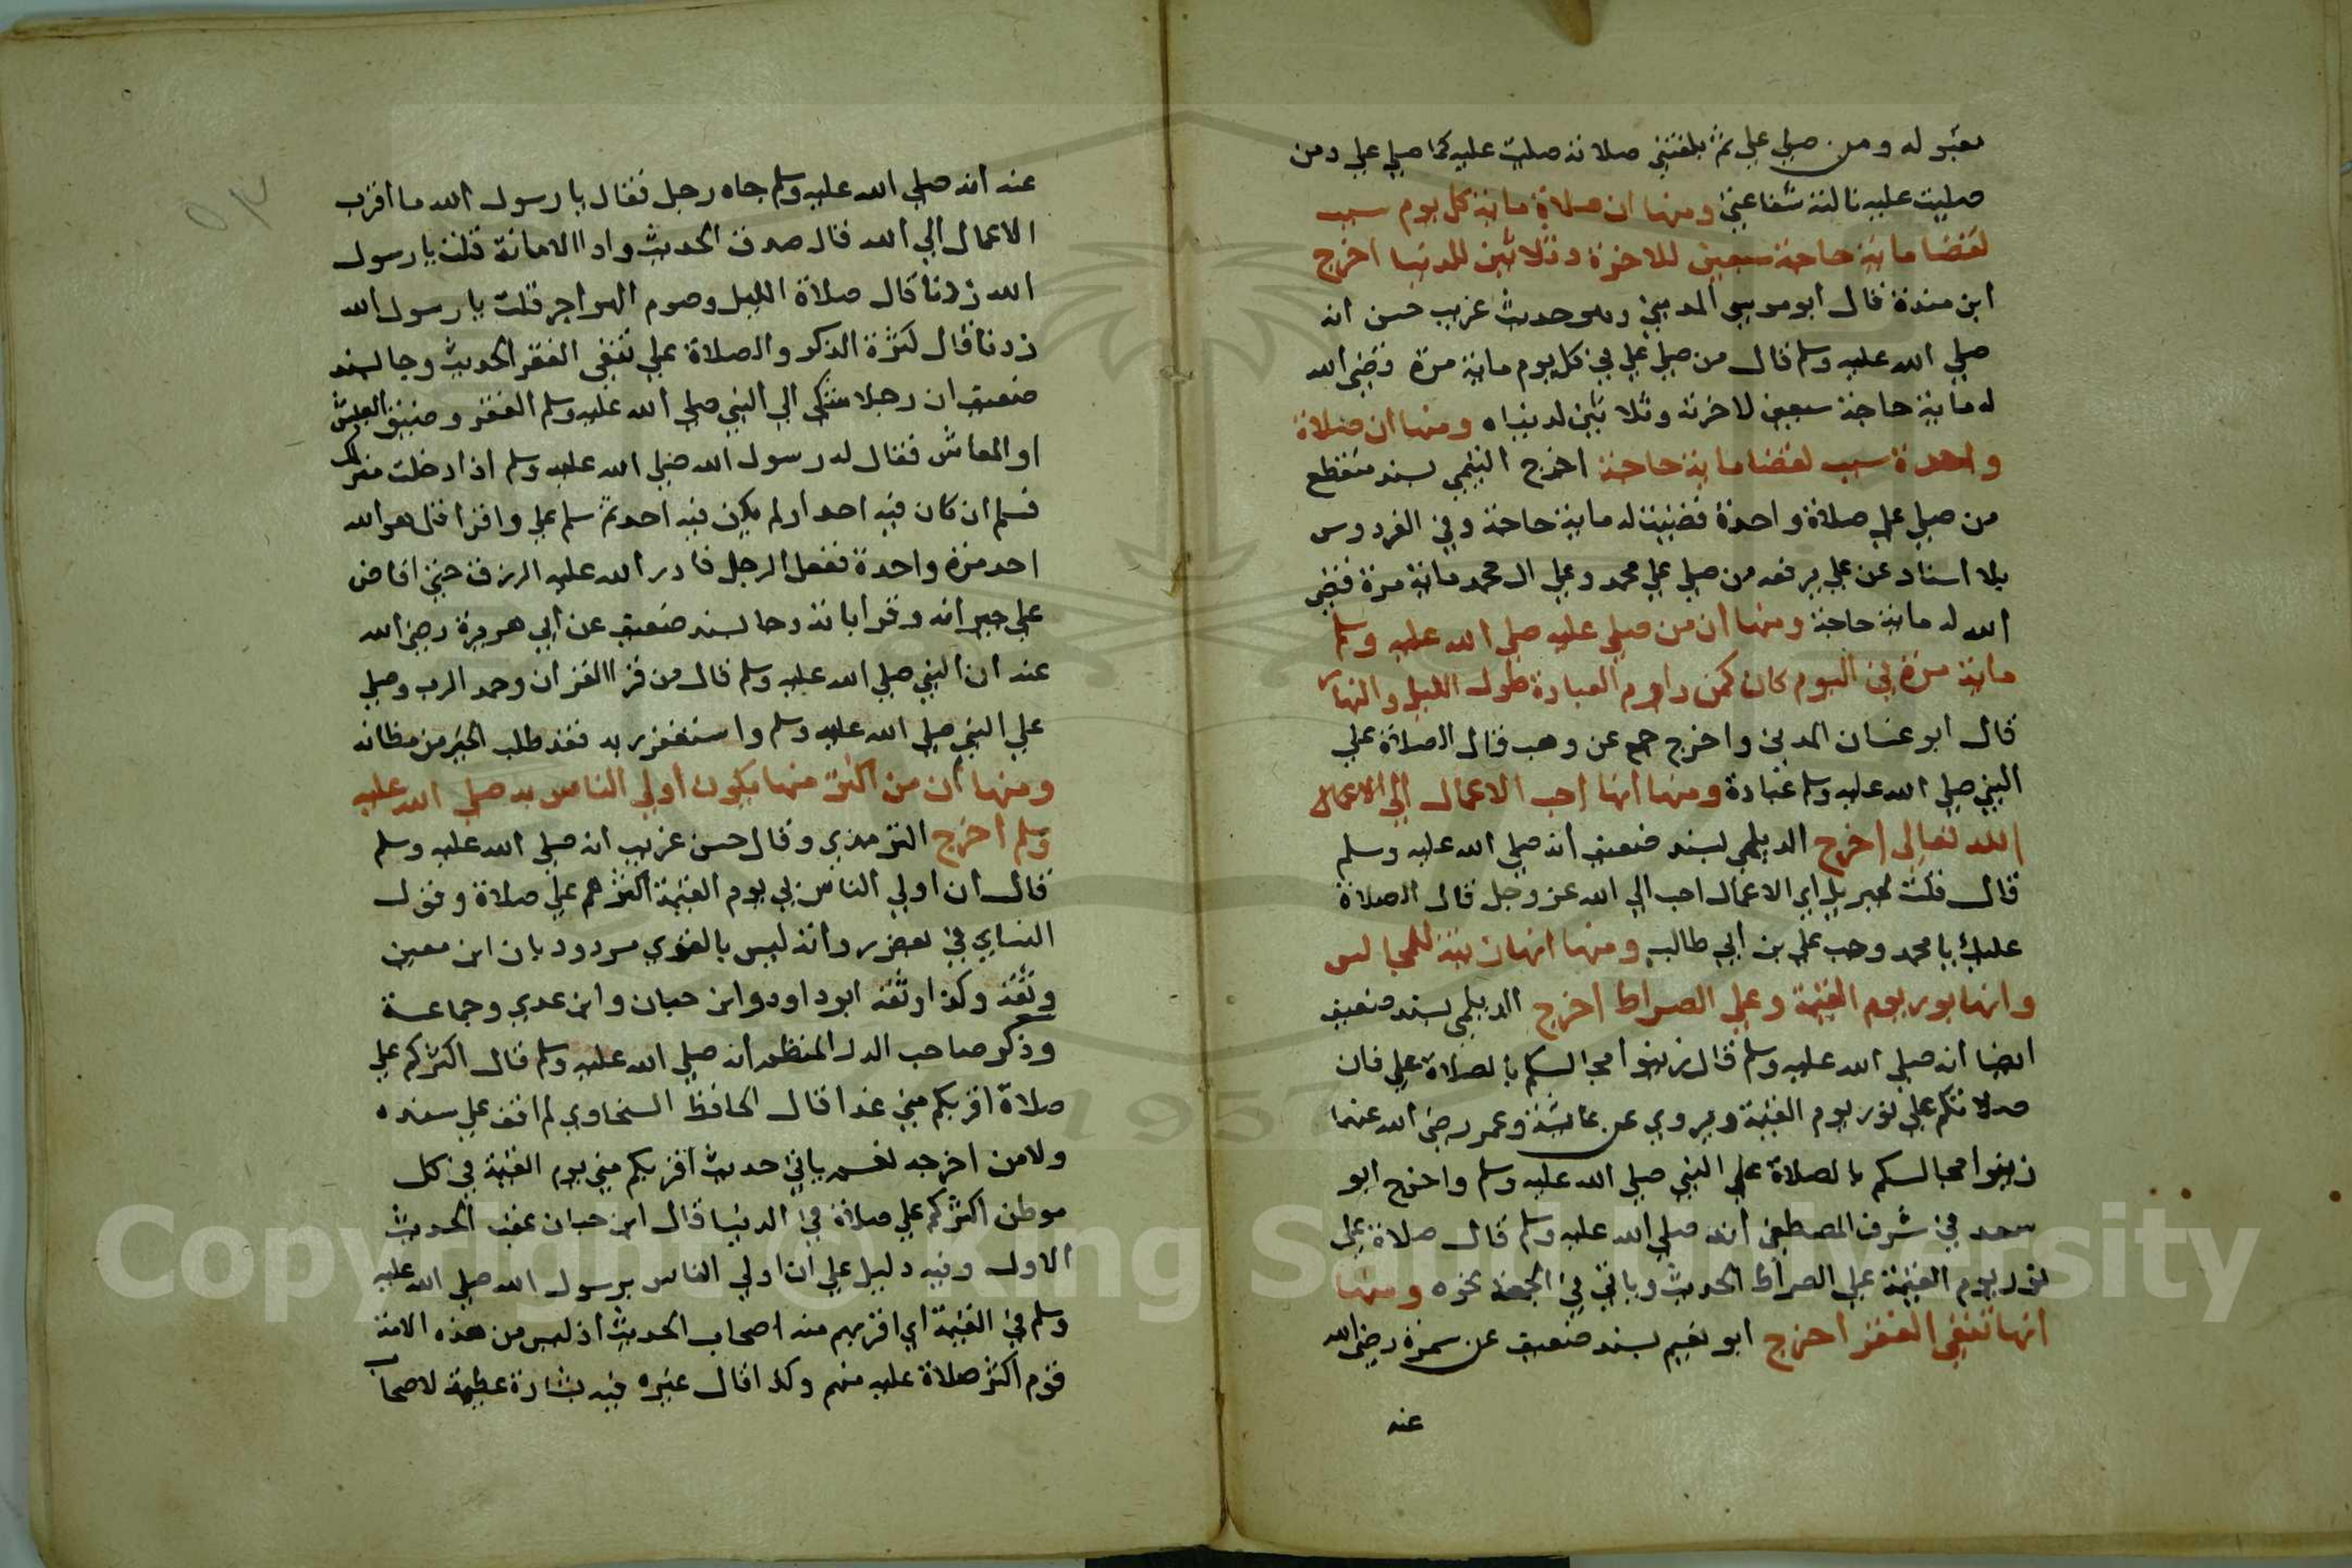 بقبوله ومن صلي علي ثم بلغتني صلاته صليت عليه كما صلي علي ومن
صليت عليه نالته شفاعتي ومنها ان صلاة ماية كل يوم سبب
لقضا ماية حاجة سبعين للاخرة وثلاثين للدنيا اخرج
ابن مندة قال ابو موسي المديني وهو حديث غريب حسن انه
صلي الله عليه وسلم قال من صلي علي في كل يوم ماية مرة قضي الله
له ماية حاجة سبعين لاخرته وثلاثين لدنياه ومنها ان صلاة
واحدة سبب لقضا ماية حاجة اخرج التيمي بسند منقطع
من صلي علي صلاة واحدة قضيت له ماية حاجة وفي الفردوس
بلا اسناد عن علي يرفعه من صلي علي محمد وعلي ال محمد ماية مرة قضي
الله له ماية حاجة ومنها ان من صلي عليه صلي الله عليه وسلم
ماية مرة في اليوم كان كمن داوم العبادة طول الليل والنهار
قال ابو غسان المدني واخرج جمع عن وهب قال الصلاة علي
النبي صلي الله عليه وسلم عبادة ومنها انها احب الاعمال الي الاعمال
الله تعالى اخرج الديلمي بسند ضعيف انه صلي الله عليه وسلم
قال قلت لجبريل اي الاعمال احب الي الله عز وجل قال الصلاة
عليك يا محمد وحب علي بن ابي طالب ومنها انها زينة للمجالس
وانها نور يوم القيمة وعلي الصراط اخرج الديلمي بسند ضعيف
ايضا انه صلي الله عليه وسلم قال زينوا مجالسكم بالصلاة علي فان
صلاتكم علي نور يوم القيمة ويروي عن عايشة وعمر رضي الله عنهما
زينوا مجالسكم بالصلاة علي النبي صلي الله عليه وسلم واخرج ابو
سعد في شرف المصطفي انه صلي الله عليه وسلم قال صلاة علي
نور يوم القيمة علي الصراط الحديث وياتي في الجمعة نحوه ومنها
انها تنفي الفقر اخرج ابو نعيم بسند ضعيف عن سمرة رضي الله
عنه
٥٣
عنه انه صلي الله عليه وسلم جاه رجل فقال يا رسول الله ما اقرب
الاعمال الي الله قال صدق الحديث وادا الامانة قلت يا رسول
الله زدنا قال صلاة الليل وصوم الهواجر قلت يا رسول الله
زدنا قال كثرة الذكر والصلاة علي تنفي الفقر الحديث وجا بسند
ضعيف ان رجلا شكى الي النبي صلي الله عليه وسلم الفقر وضيق العيش
او المعاش فقال له رسول الله صلي الله عليه وسلم اذا دخلت منزلك
فسلم ان كان فيه احد او لم يكن فيه احد ثم سلم علي واقرا قل هو الله
احد مرة واحدة ففعل الرجل فادر الله عليه الرزق حتي افاض
علي جيرانه وقراباته وجا بسند ضعيف عن ابي هريرة رضي الله
عنه ان النبي صلي الله عليه وسلم قال من قرا القران وحمد الرب وصلي
علي النبي صلي الله عليه وسلم واستغفر ربه فقد طلب الخير من مظانه
ومنها ان من اكثر منها يكون اولي الناس به صلي الله عليه
وسلم اخرج الترمذي وقال حسن غريب انه صلي الله عليه وسلم
قال ان اولي الناس بي يوم القيمة اكثرهم علي صلاة وقول
النساي في بعض رواته ليس بالقوي مردود بان ابن معين
وثقه وكذا وثقه ابو داود وابن حبان وابن عدي وجماعة
وذكر صاحب الدر المنظم انه صلي الله عليه وسلم قال اكثركم علي
صلاة اقربكم مني غدا قال الحافظ السخاوي لم اقف علي سنده
ولا من اخرجه نعم ياتي حديث اقربكم مني يوم القيمة في كل
موطن اكثركم علي صلاة في الدنيا قال ابن حبان عقب الحديث
الاول وفيه دليل علي ان اولي الناس برسول الله صلي الله عليه
وسلم في القيمة اي اقربهم منه اصحاب الحديث اذ ليس من هذه الامة
قوم اكثر صلاة عليه منهم وكذا قال غيره فيه بشارة عظيمة لاصحاب
Copyright © King Saud University
1957